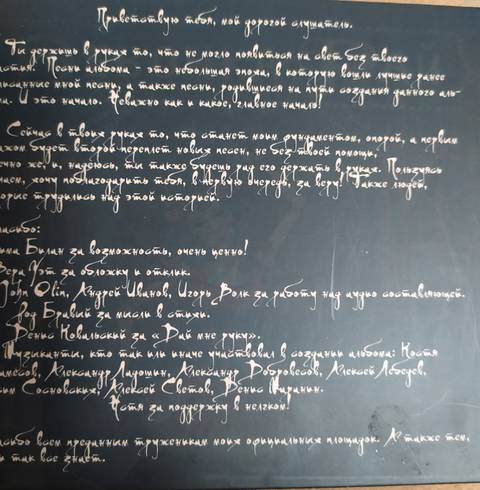 Приветствую тебя, мой дорогой слушатель.
Ты держишь в руках то, что не могло появиться на свет без твоего
астия. Песни альбома - это небольшая эпоха, в которую вошли лучшие ранее
исанные мной песни, а также песни, родившиеся на пути создания данного аль-
ма. И это начало. Неважно как и какое, главное начало!
Сейчас в твоих руках то, что станет моим фундаментом, опорой, а первым
ажом будет второй переплет новых песен, не без твоей помощи,
ечно же, и, надеюсь, ты также будешь рад его держать в руках. Пользуясь
чаем, хочу поблагодарить тебя, в первую очередь, за веру! Также людей,
орые трудились над этой историей.
асибо:
има Билан за возможность, очень ценно!
Вера Уэт за обложку и отклик.
John Olin, Андрей Иванов, Игорь Волк за работу над аудио составляющей.
Род Бравый за мысли в стихи.
Денис Ковальский за «Дай мне руку».
Музыканты, кто так или иначе участвовал в создании альбома: Костя
Александр Ладошин, Александр Алексей Лебедев,
сим Сосновских, Алексей Светов, Денис Чаранин.
Катя за поддержку в нелгком!
асибо всем преданным труженикам моих официальных площадок. А также тем,
и так все знает.